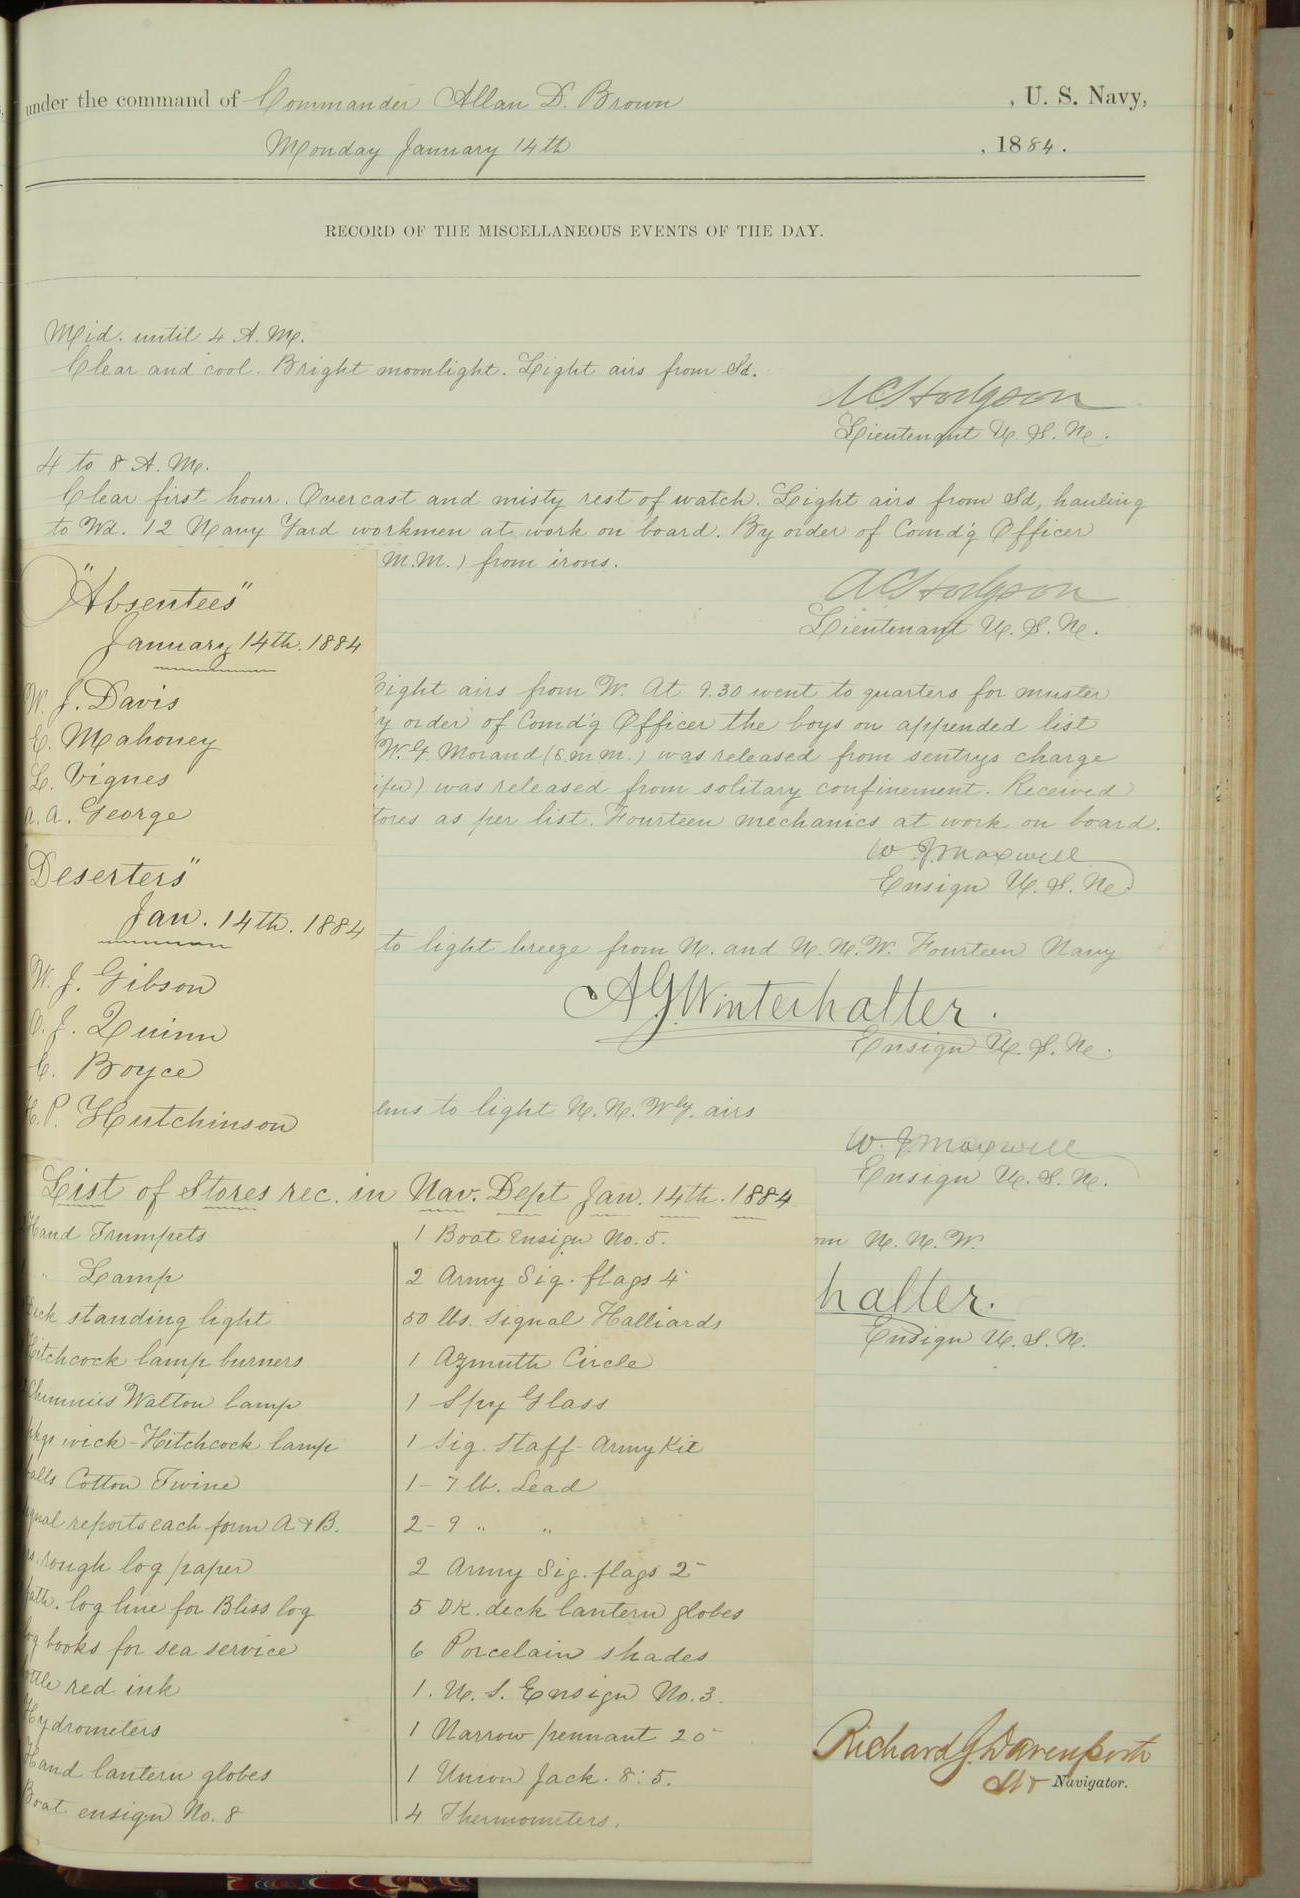 under the command of Commander Allan D. Brown , U. S. Navy,
Monday January 14th , 1884.
RECORD OF THE MISCELLANEOUS EVENTS OF THE DAY.
Mid. until 4 A.M.
Clear and cool. Bright moonlight. Light airs from Sd.
Hodgson
Lieutenant U.S.N.
4 to 8 A.M.
Clear first hour. Overcast and misty rest of watch. Light airs from Sd, hauling
to Wd. 12 Navy Yard workmen at work on board. By order of Comd'g Officer
M.M.) from irons.
Hodgson
Lieutenant U.S.N.
Light airs from W. At 9.30 went to quarters for muster
y order of Comd'g Officer the boys on appended list
W.G. Morand (S.M.M.) was released from sentrys charge
ifer) was released from solitary confinement. Received
tores as per list. Fourteen mechanics at work on board.
W.J. Maxwell
Ensign U.S.N.
to light breeze from N. and N.N.W. Fourteen Navy
A.G. Winterhalter.
Ensign U.S.N.
lms to light N.N.Wly. airs
W.J. Maxwell
Ensign U.S.N.
om N.N.W.
halter.
Ensign U.S.N.
"Absentees"
January 14th. 1884
W. J. Davis
C. Mahoney
L. Vignes
A. George
Deserters"
Jan. 14th. 1884
W. J. Gibson
J. Quinn
C. Boyce
P. Hutchinson
List of Stores rec. in Nav. Dept Jan. 14th. 1884
Hand Trumpets
" Lamp
eck standing light
Hitchcock lamp burners
Chimnies Walton lamp
pkgs wick - Hitchcock lamp
balls Cotton Twine
ignal reports each form A & B.
rough log paper
fath. log line for Bliss log
og books for sea service
ottle red ink
Hydrometers
Hand lantern globes
Boat ensign No. 8
1 Boat Ensign No. 5.
2 Army Sig. flags 4'
50 lbs. Signal Halliards
1 Azmuth Circle
1 Spy Glass
1 Sig. Staff - Army Kit
1 - 7 lb. Lead
2 - 9 " "
2 Army Sig. flags 2'
5 DK. deck lantern globes
6 Porcelain shades
1. U.S. Ensign No. 3.
1 Narrow pennant 20'
1 Union Jack. 8: 5.
4 Thermometers.
Richard G. Davenport
Navigator.